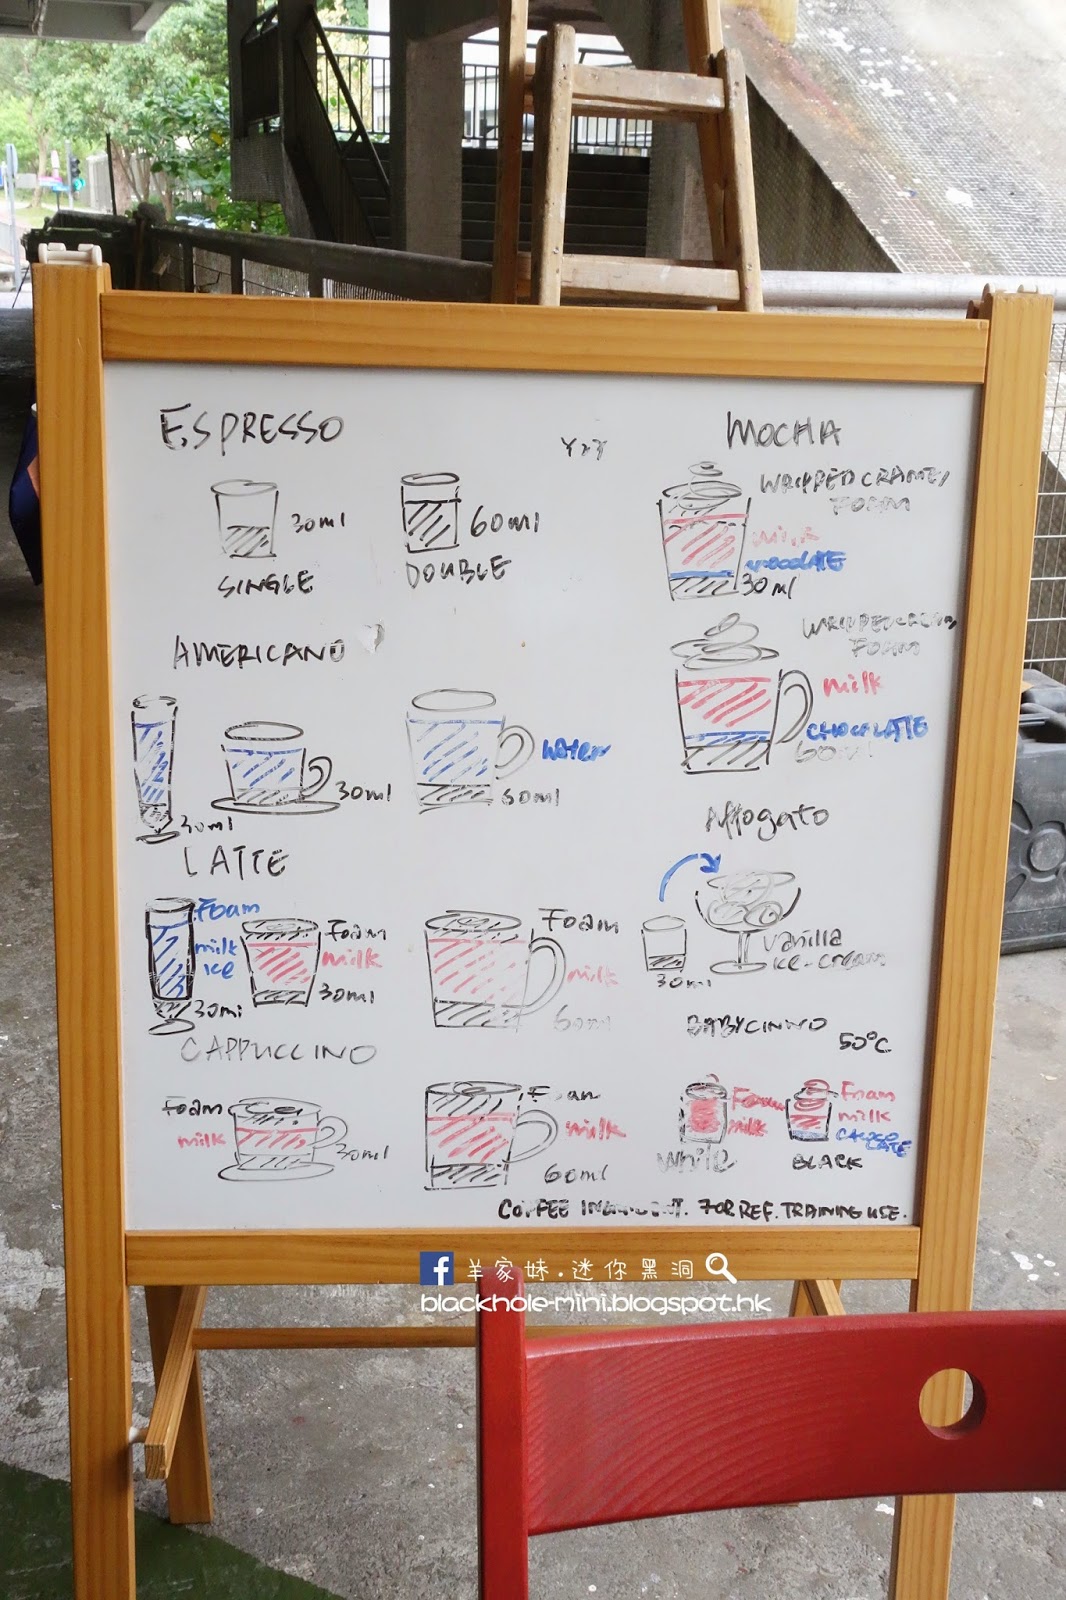 ESPRESSO
30ml
SINGLE
60ml
DOUBLE
AMERICANO
30ml
30ml
water
60ml
LATTE
Foam
milk
ice
30ml
Foam
milk
30ml
Foam
milk
60ml
CAPPUCCINO
Foam
milk
30ml
milk
60ml
MOCHA
FOAM
milk
30ml
FOAM
milk
CHOCOLATE
60ml
Affogato
30ml
vanilla
ice-cream
BABYCINNO
50°C
Foam
milk
White
Foam
milk
CHOCO
LATE
BLACK
COFFEE FOR REF. TRAINING USE.
羊家妹.迷你黑洞
blackhole-mini.blogspot.hk